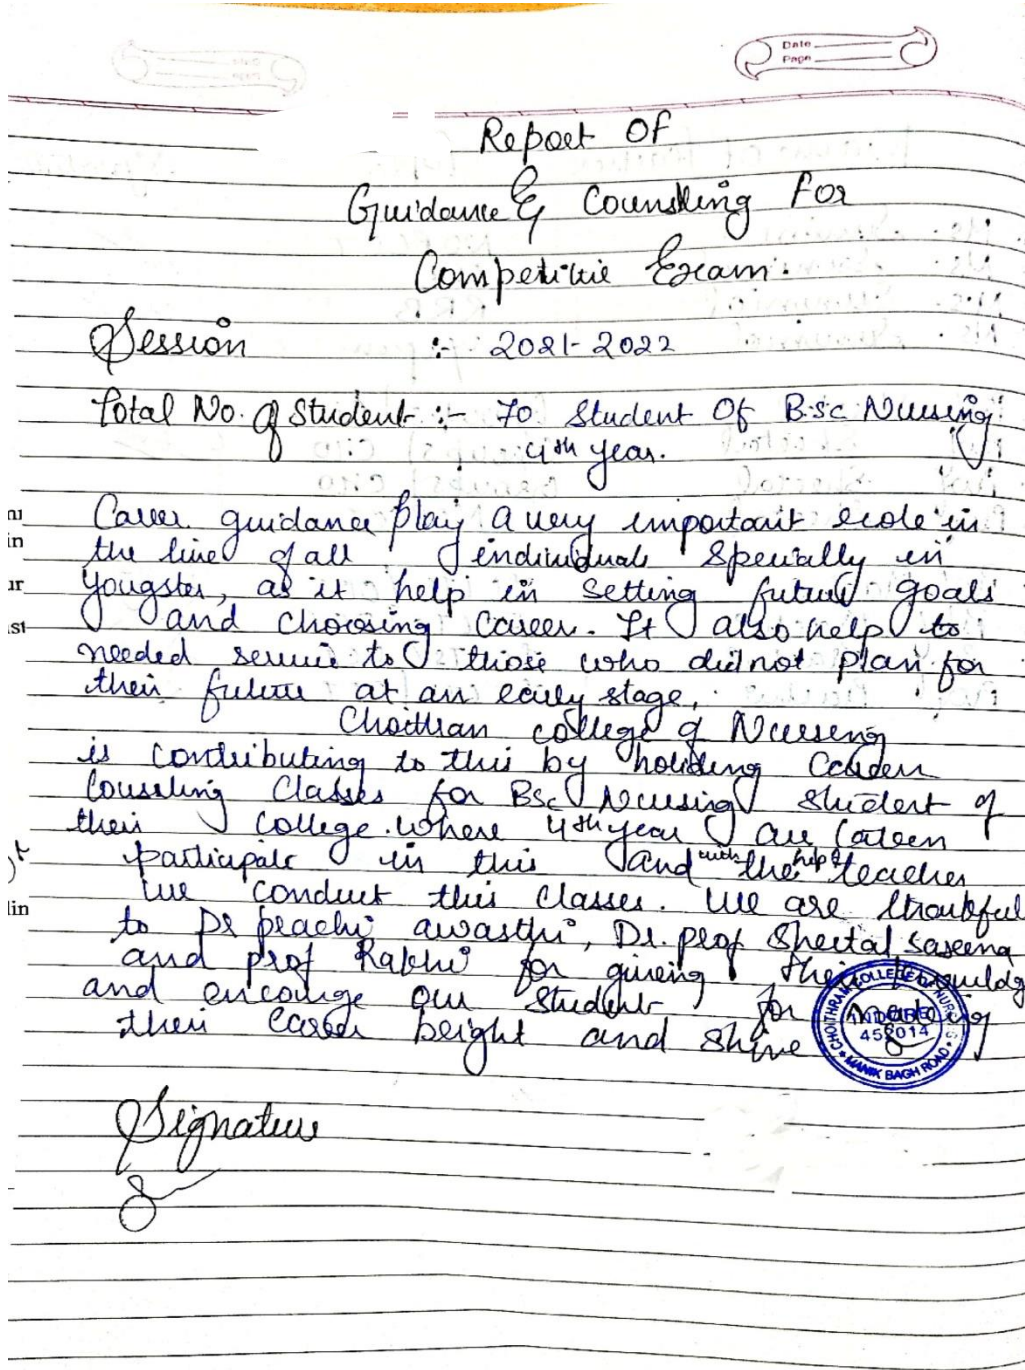 Date
Page
Report Of
Guidance & Counsling For
Competitive Exam.
Session :- 2021-2022
Total No. of Student :- 70 Student Of B.sc Nursing
4th year.
Career guidance play a very important role in
the line of all individuals specially in
yougster, as it help in setting future goals
and choosing career. It also help to
needed servie to those who did not plan for
their future at an early stage.
Choithram college of Nursing
is contributing to this by holding
Counseling Classes for BSc Nursing student of
their college. where 4th year are
participate in this and with the help of teacher
we conduct this classes. We are thankful
to Dr prachi awasthi, Dr. prof Sheetal Saxena
and prof Rakhi for giving their
and encourge our student for making
their career bright and shine
CHOITHRAM COLLEGE OF NURSING
INDORE
452014
MANIK BAGH ROAD
Signature